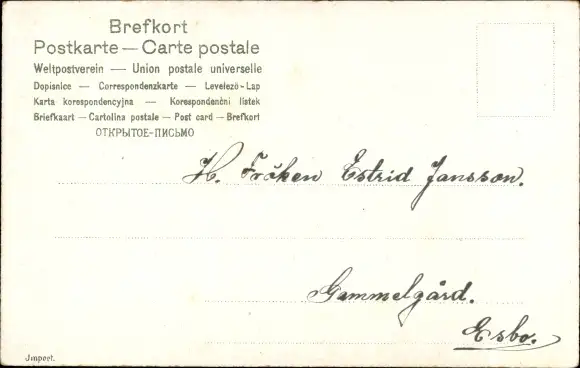 Brefkort
Postkarte — Carte postale
Weltpostverein — Union postale universelle
Dopisnice — Correspondenzkarte — Levelező-Lap
Karta korespondencyjna — Korespondenčni listek
Briefkaart — Cartolina postale — Post card — Brefkort
ОТКРЫТОЕ-ПИСЬМО
H. Fröken Estrid Jansson.
Gammelgård.
Esbo.
Jmport.